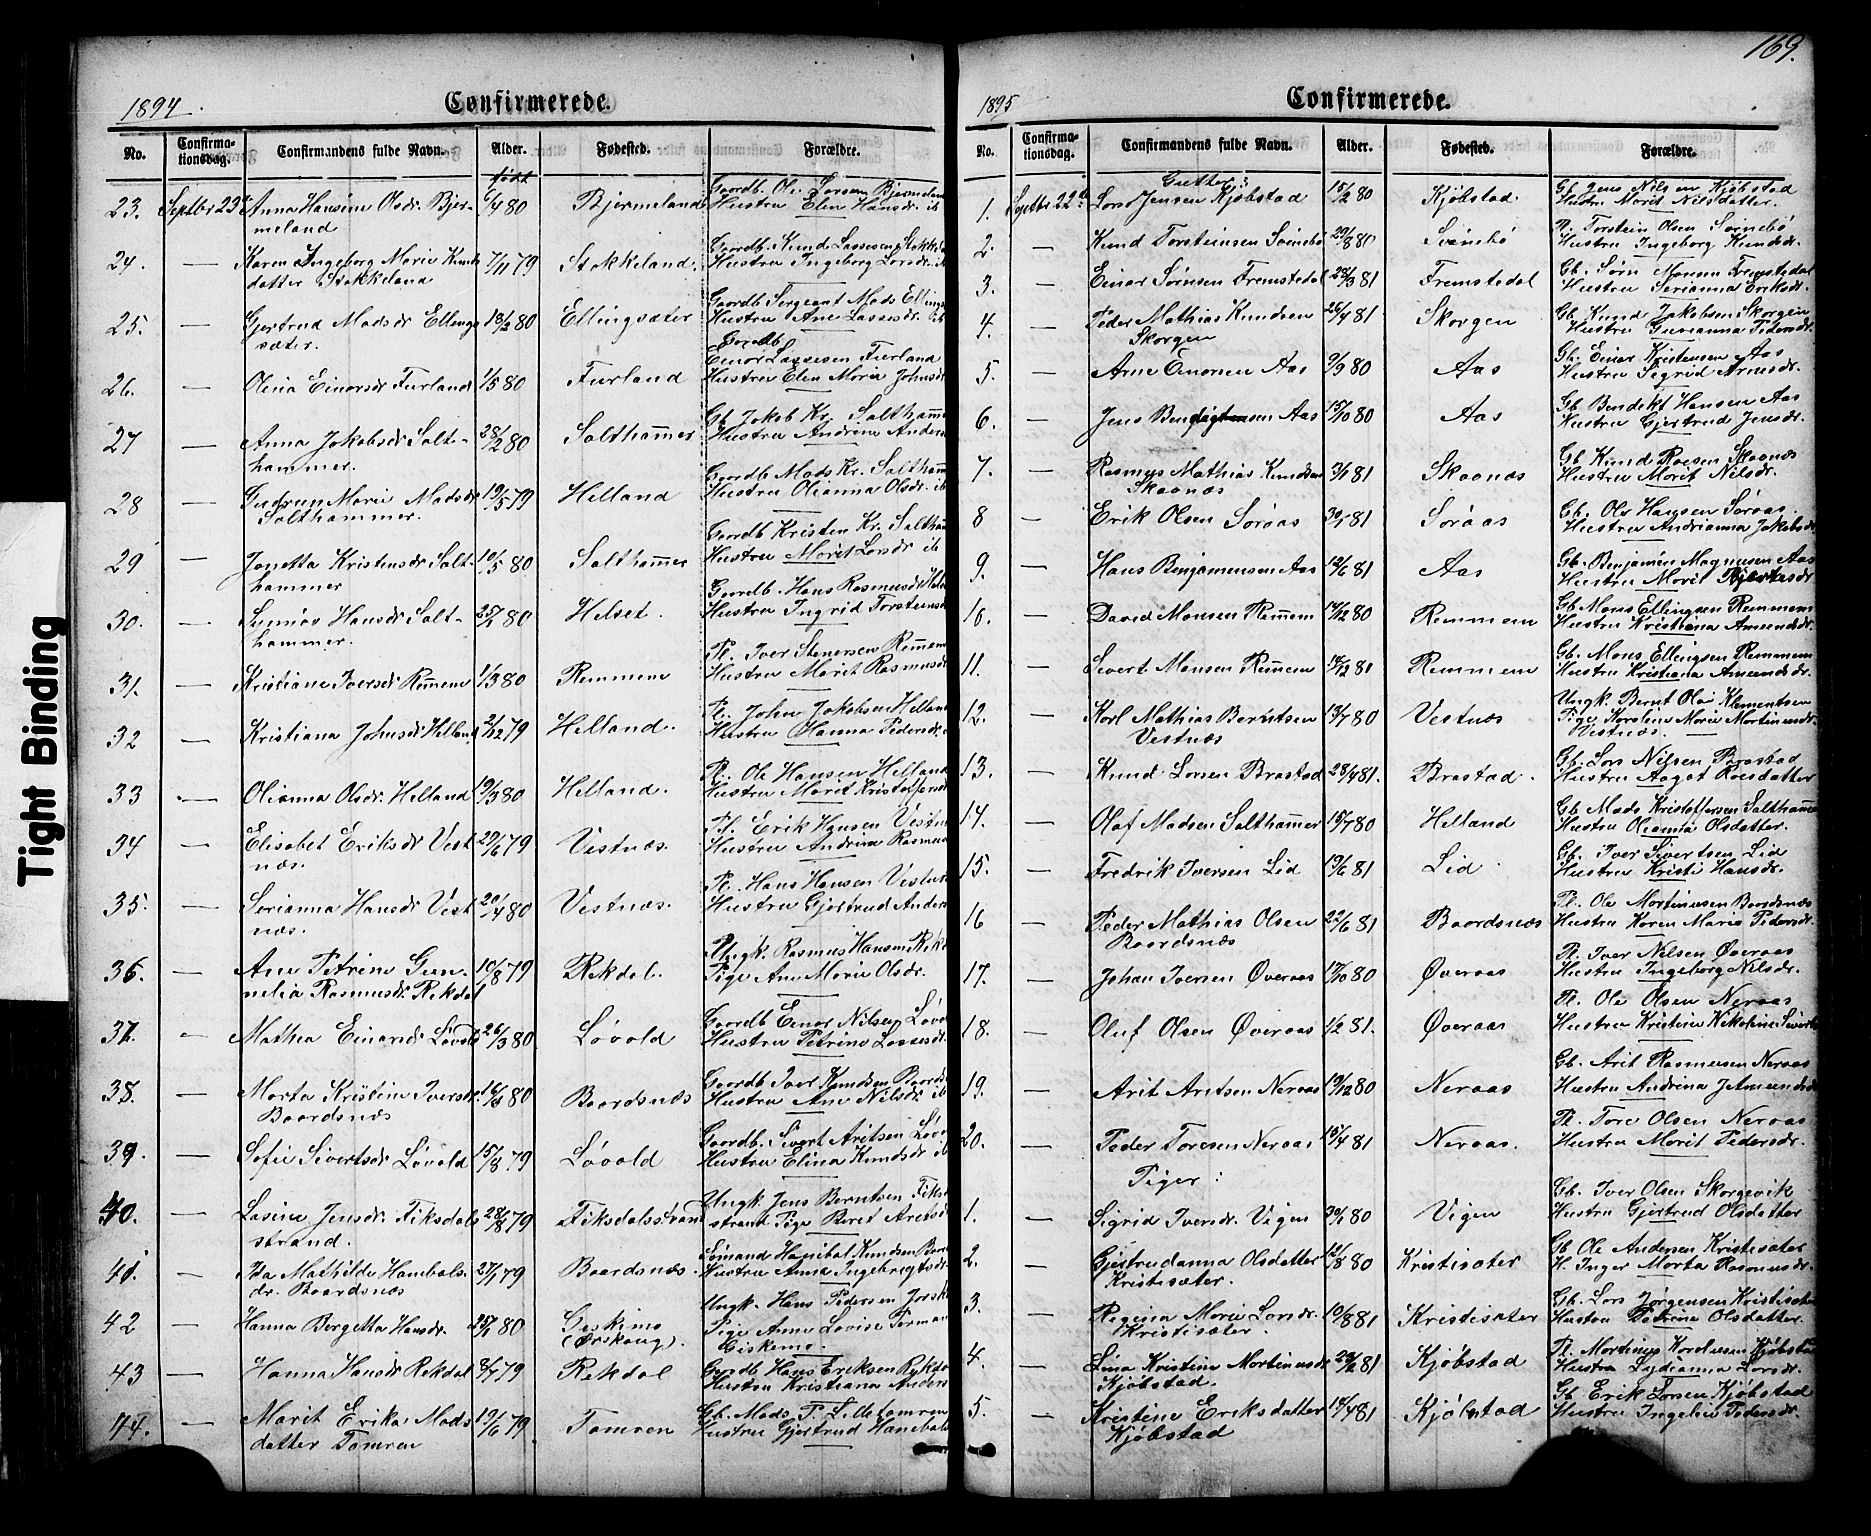 169.
1894.
Confirmerede.
No.
Confirmationsdag.
Confirmandens fulde Navn.
Alder.
Fødested.
Forældre.
født
23. Septbr 23de Anna Hansine Olsdr. Bjermeland 6/4 80 Bjermeland Gaardb. Ole Larsen Bjermeland
Hustru Elen Hansdr. ib
24. — Karen Ingeborg Marie Knuds 7/11 79 Stokkeland. Gaardb. Knud Lassesen Stokke
datter Stokkeland Hustru Ingeborg Larsdr. ib
25. — Gjertrud Madsdr Ellings 13/2 80 Ellingsæter Gaardb. Sergeant Mads Ellings
sæter. Hustru Ane Lassesdr. ib
26. — Olina Einarsdr Furland 1/5 80 Furland Gaardb
Einar Lassesen Furland
Hustru Elen Marie Johnsdr
27 — Anna Jakobsdr Salt- 28/2 80 Salthammer Gb. Jakob Kr. Salthammer
hammer. Hustru Andrine Anders
28 — Gudrun Marie Madsdr 19/5 79 Helland Gaardb. Mads Kr. Salthamm
Salthammer. Hustru Olianna Olsdr. ib
29 — Jonetta Kristensdr Salt- 10/5 80 Salthammer Gaardb Kristen Kr. Salthamm
hammer Hustru Marit Larsdr ib
30. — Hansdr Salt- 25/1 80 Helset. Gaardb. Hans Rasmusdr Hel
hammer. Hustru Ingrid Torsteinsd
31. — Kristiane Iversdr Remmem 1/3 80 Remmem Pl. Iver Stenersen Remmem
Hustru Marit Rasmusdr
32 — Kristiana Johnsdr Helland 2/12 79 Helland. Pl. John Jakobsen Helland
Hustru Hanna Pedersdr.
33 — Olianna Olsdr. Helland 19/3 80 Helland. Pl. Ole Hansen Helland
Hustru Marit Kristoffersdr
34 — Elisabet Eriksdr Vest 29/6 79 Vestnæs. Pl. Erik Hansen Vestnæs
næs. Hustru Andrina Rasmus
35. — Serianna Hansdr Vest 20/4 80 Vestnæs. Pl. Hans Hansen Vestn
næs. Hustru Gjertrud Anders
36. — Ane Petrine Gun- 10/8 79 Rekdal. Ungk. Rasmus Hansen Rek
nelia Rasmusdr. Rekdal Pige Ane Marie Olsdr.
37. — Mathea Einarsdr Løvold 26/3 80 Løvold Gaardb Einar Nilsen Løvo
Hustru Petrine Lassesdr.
38. — Marta Kristine Iversdr 16/4 80 Baardsnæs Gaardb Iver Knudsen Baards
Baardsnæs Hustru Ane Nilsdr ib
39. — Sofie Sivertsdr Løvold 15/8 79 Løvold Gaardb. Sivert Aritsen Løvo
Hustru Elina Knudsdr ib
40. — Lasine Jensdr. Fiksdals 28/8 79 Fiksdalsstrand Ungk. Jens Berntsen Fiks
strand. strand Pige Beret Aretsd
41. — Ida Mathilde Hanibals- 27/1 79 Baardsnæs. Sømand Hanibal Knudsen Baar
dr. Baardsnæs Hustru Anna Ingebrigtsdr
42 — Hanna Bergetta Hansdr. 25/1 80 Geskimo Ungk. Hans Pedersen
(Ørskoug). Pige Anne Lovise
Giskemo.
43 — Hanna Hansdr Rekdal 8/7 79 Rekdal Gaardb Hans Eriksen Rekdal
Hustru Kristiana Anders
44. — Marit Erika Mads 19/6 79. Tomren Gb. Mads P. Lilletomren
datter Tomren Hustru Gjertrud Hanibals
1895
Confirmerede.
No.
Confirmationsdag.
Confirmandens fulde Navn.
Alder.
Fødested.
Forældre.
Gutter:
1. Septbr 22de Lars Jensen Kjøbstad 15/2 80 Kjøbstad Gb. Jens Nilsen Kjøbstad
Hustru Marit Nilsdatter.
2. — Knud Torsteinsen Svinebø 29/8 80 Svinebø Pl. Torstein Olsen Svinebø
Hustru Ingeborg Knudsdr.
3. — Einar Sørnsen Fremstedal 28/3 81 Fremstedal Gb. Sørn Monsen Fremstedal
Hustru Serianna Eriksdr.
4. — Peder Mathias Knudsen 26/4 81 Skorgen Gb. Knud Jakobsen Skorgen
Skorgen Hustru Gurianna Pedersdr.
5. — Arne Einarsen Aas 9/9 80 Aas Gb. Einar Kristensen Aas
Hustru Sigrid Arnesdr.
6. — Jens Bendigtsen Aas 15/10 80 Aas Gb. Bendikt Hansen Aas
Hustru Gjertrud Jensdr.
7. — Rasmus Mathias Knudsen 3/1 81 Skaanæs Gb. Knud Roesen Skaanæs
Skaanæs Hustru Marit Nilsdr.
8 — Erik Olsen Søraas 30/1 81 Søraas Gb. Ole Hansen Søraas.
Hustru Andrianna Jakobsdr
9. — Hans Benjaminsen Aas 12/6 81 Aas Gb. Benjamin Magnusen Aas
Hustru Marit
10. — David Monsen Remmem 17/12 80 Remmem Gb. Mons Ellingsen Remmem
Hustru Kristiana Amundsdr.
11. — Sivert Monsen Remmem 17/12 81 Remmem Gb. Mons Ellingsen Remmem
Hustru Kristiana Amundsdr.
12. — Karl Mathias Berntsen 13/7 80 Vestnæs Ungk. Bernt Olai Klementsen
Vestnæs Pige Karoline Marie Martinusdr.
Vestnæs.
13. — Knud Larsen Brastad 28/4 81. Brastad. Gb. Lars Nilsen Brastad
Hustru Aagot Roesdatter
14. — Olaf Madsen Salthammer 15/7 80 Helland Gb. Mads Kristoffersen Salthammer
Hustru Olianna Olsdatter.
15. — Fredrik Iversen Lid 19/6 81 Lid Gb. Iver Sivertsen Lid
Hustru Kristi Hansdr.
16 — Peder Mathias Olsen 22/6 81 Baardsnæs Pl. Ole Martinusen Baardsnæs
Baardsnæs Hustru Karen Maria Pedersdr.
17. — Johan Iversen Øveraas 17/10 80 Øveraas Pl. Iver Nilsen Øveraas
Hustru Ingeborg Nilsdr.
18. — Oluf Olsen Øveraas 1/2 81. Øveraas Pl. Ole Olsen Neraas
Hustru Kristine Nikoline Siverts
19. — Arit Aritsen Neraas 19/12 80 Neraas Gb. Arit Rasmussen Neraas
Hustru Andrina J Amundsdr
20. — Peder Toresen Neraas 15/4 81 Neraas. Pl. Tore Olsen Neraas
Hustru Marit Pedersdr.
Piger:
1. — Sigrid Iversdr. Vigen 30/1 80 Vigen Gb. Iver Olsen Skorgevik
Hustru Gjertrud Olsdatter
2. — Gjertrudanna Olsdatter 12/8 80 Kristisæter Gb. Ole Andersen Kristisæter
Kristisæter. H. Inger Marta Rasmusdr.
3. — Regina Marie Larsdr. 10/8 81 Kristisæter Gb. Lars Jørgensen Kristisæter
Kristisæter. Hustru Petrine Olsdatter
4. — Lina Kristine Martinusdr 20/2 81 Kjøbstad Pl. Martinus Kornelusen Kjøbstad
Kjøbstad. Hustru Lydianna Larsdr.
5. — Kristine Eriksdatter 18/4 81 Kjøbstad Gb. Erik Larsen Kjøbstad
Kjøbstad Hustru Ingeleiv Pedersdr.
Tight Binding